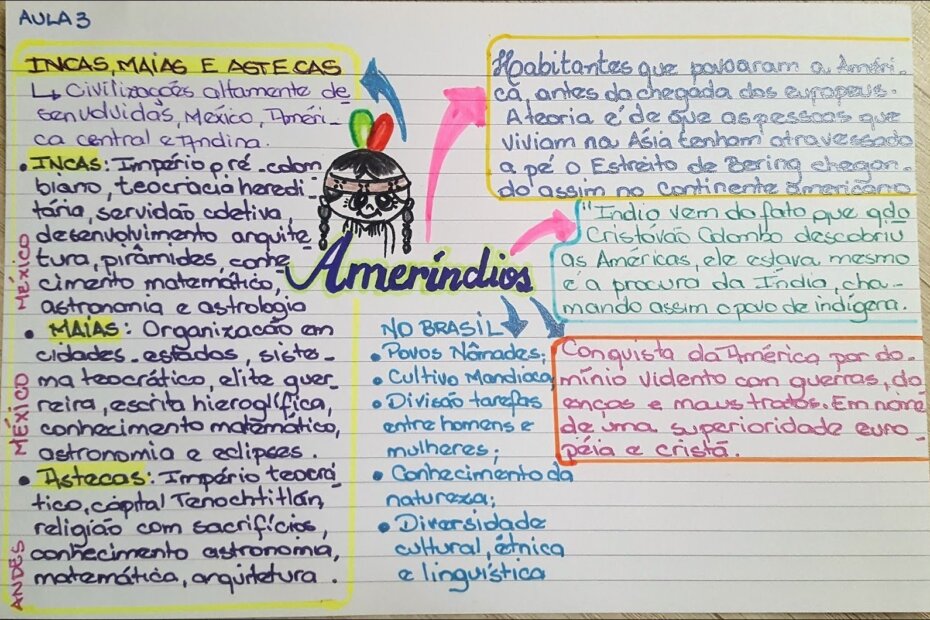 AULA 3
INCAS, MAIAS E ASTECAS
↳ Civilizações altamente de
senvolvidas, México, Améri-
ca central e Andina.
• INCAS: Império pré-colom
biano, teocracia heredi-
tária, servidão coletiva,
desenvolvimento arquite-
tura, pirâmides, conhe-
cimento matemático,
astronomia e astrologia
• MAIAS: Organização em
cidades-estados, siste-
ma teocrático, elite guer-
reira, escrita hieroglífica,
conhecimento matemático,
astronomia e eclipses.
• Astecas: Império teocrá-
tico, capital Tenochtitlán,
religião com sacrifícios,
conhecimento astronomia,
matemática, arquitetura.
MÉXICO
MÉXICO
ANDES
Ameríndios
Habitantes que povoaram a Améri-
ca, antes da chegada dos europeus.
A teoria é de que as pessoas que
viviam na Ásia tenham atravessado
a pé o Estreito de Bering chegan-
do assim no Continente Americano
"Índio vem do fato que qdo
Cristóvão Colombo descobriu
as Américas, ele estava mesmo
é a procura da Índia, cha-
mando assim o povo de indígena.
NO BRASIL
• Povos Nômades;
• Cultivo Mandioca
• Divisão tarefas
entre homens e
mulheres;
• Conhecimento da
natureza;
• Diversidade
cultural, étnica
e linguística
Conquista da América por do-
mínio violento com guerras, do
enças e maus tratos. Em nome
de uma superioridade euro-
péia e cristã.